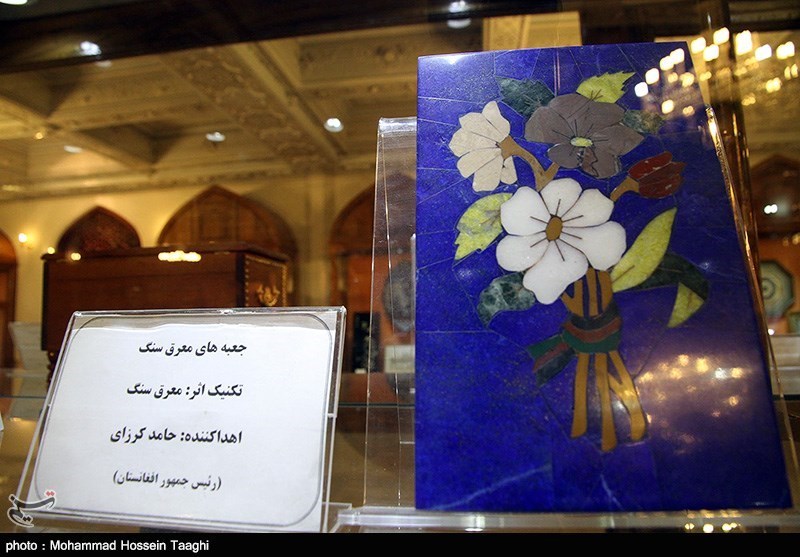 جعبه های معرق سنگ
تکنیک اثر: معرق سنگ
اهداکننده: حامد کرزای
(رئیس جمهور افغانستان)
تسنیم
photo : Mohammad Hossein Taaghi